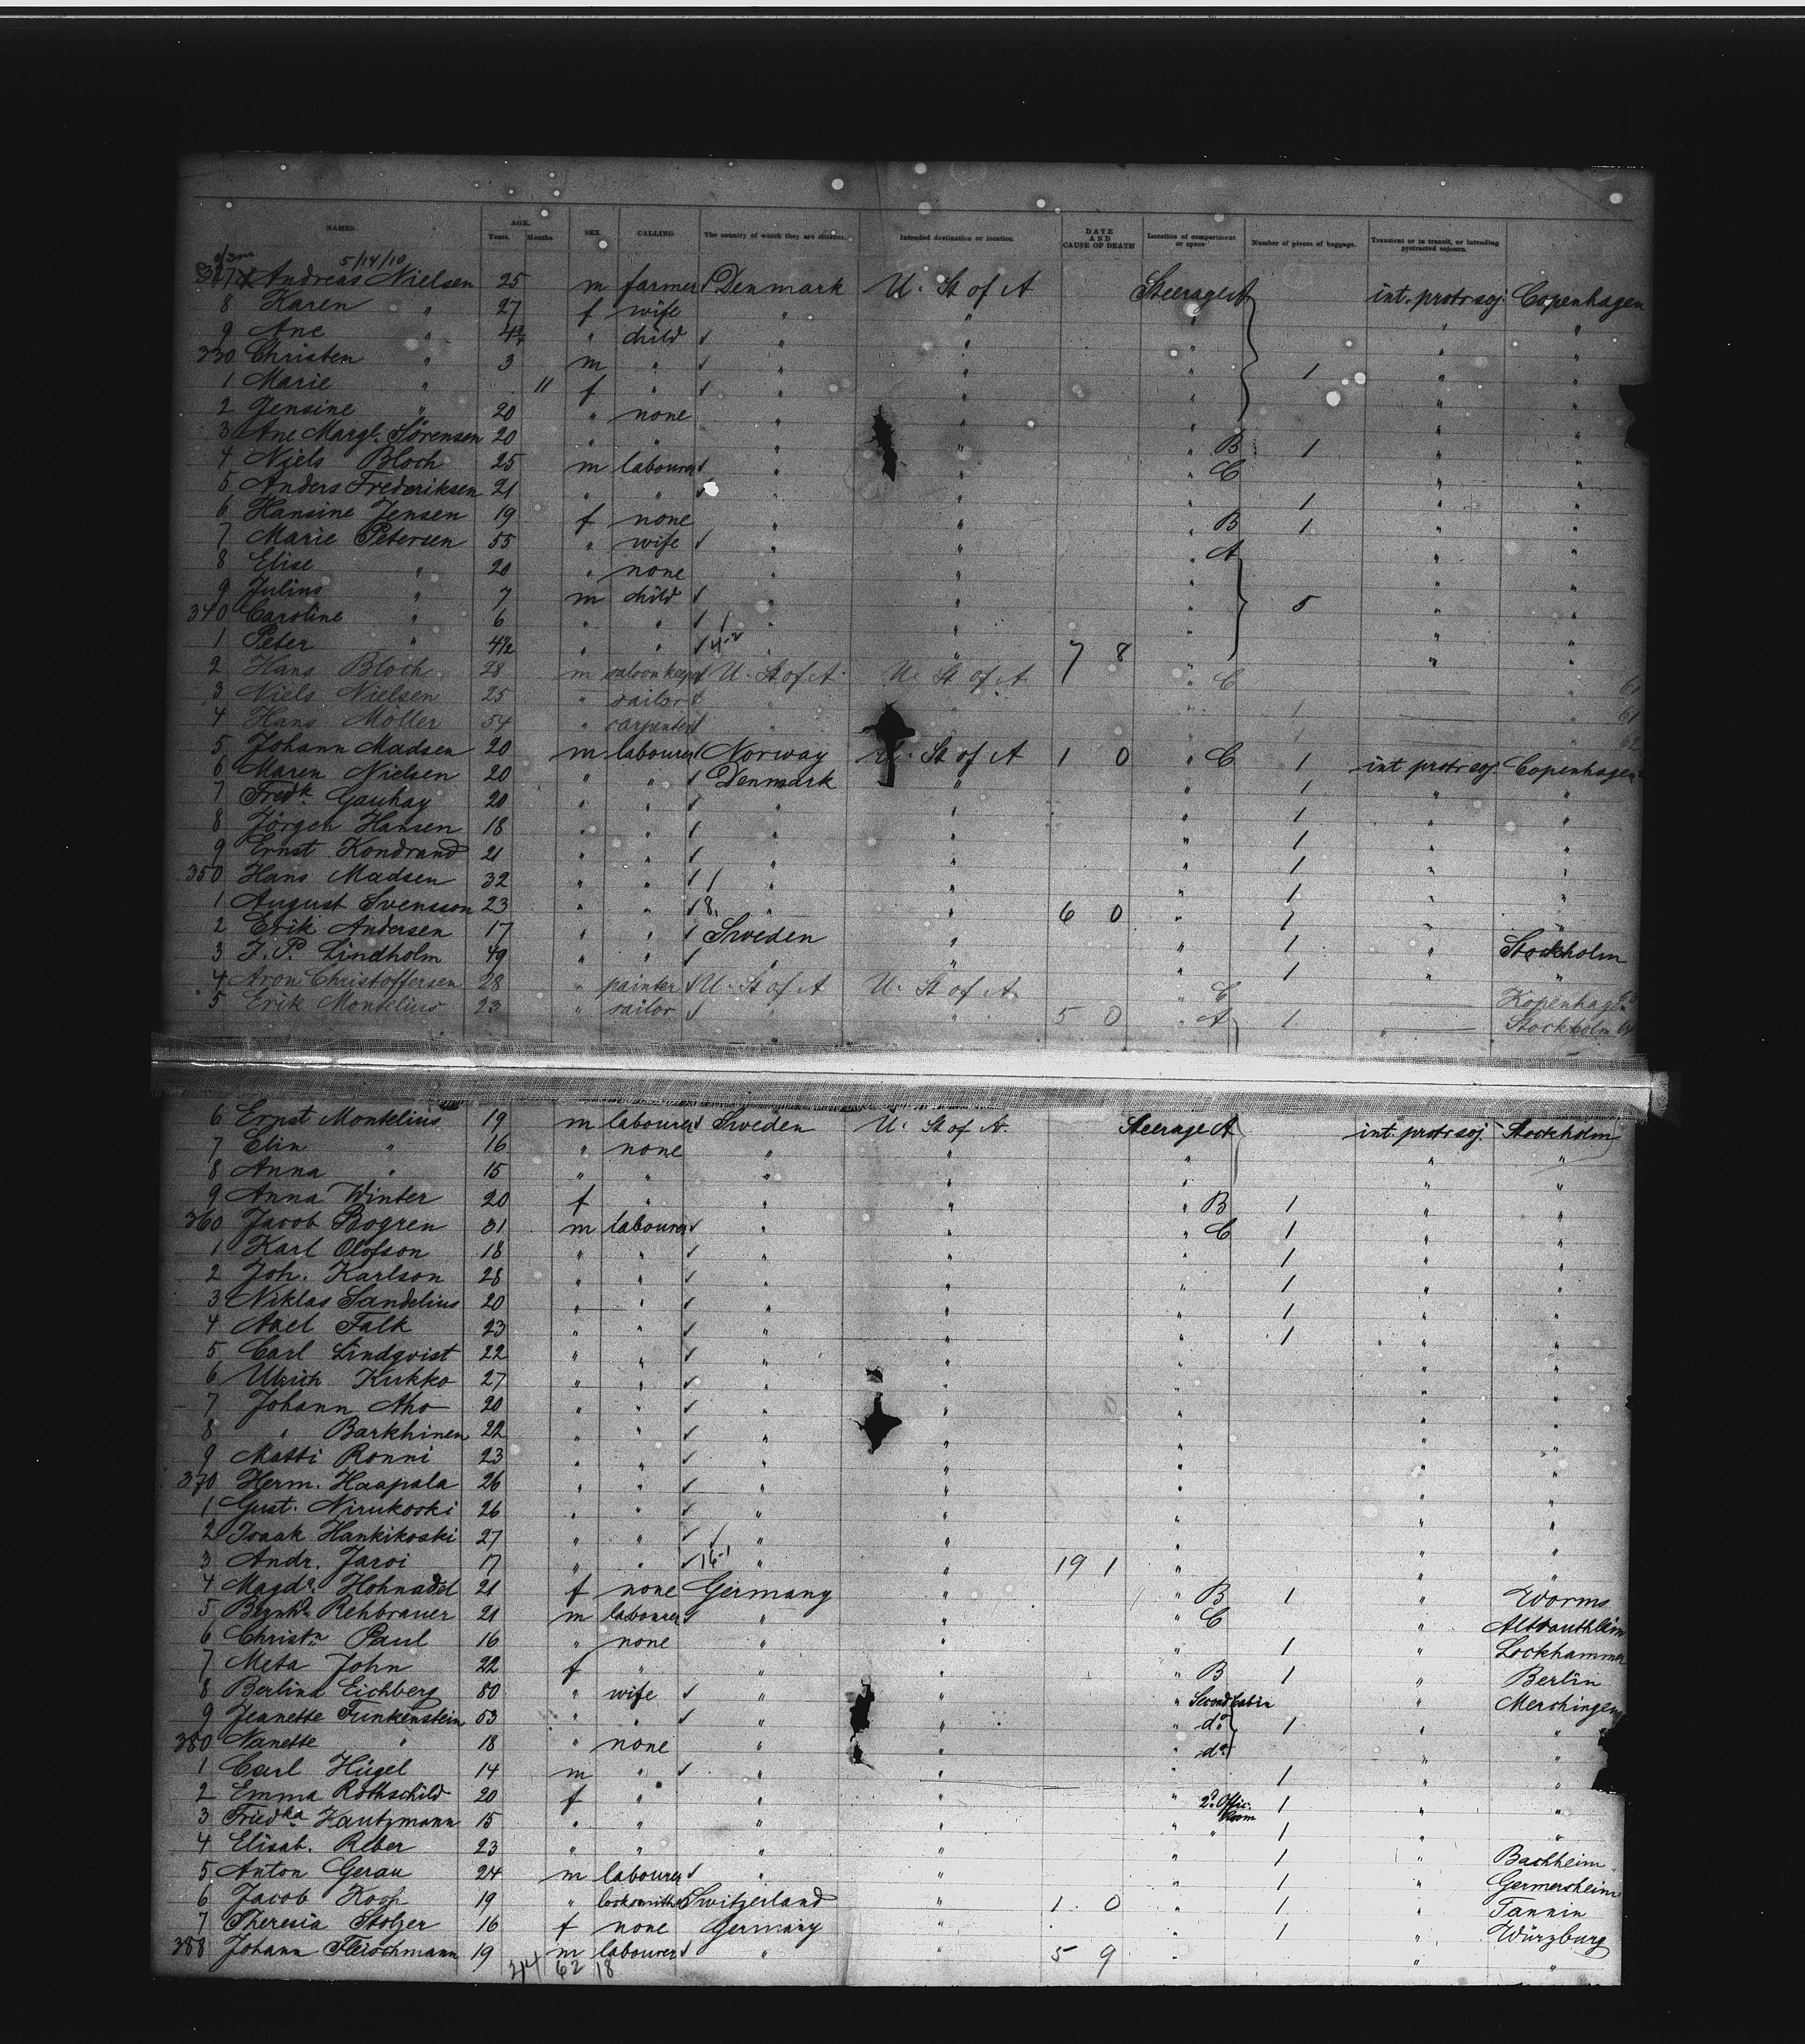 NAMES. AGE. Years. Months. SEX. CALLING The country of which they are citizens. Intended destination or location. DATE AND CAUSE OF DEATH Location of compartment or space Number of pieces of baggage. Transient or in transit, or intending protracted sojourn.
5/14/10
327 Andreas Nielsen 25 m farmer Denmark U. St of A Steerage A int. protr soj. Copenhagen
8 Haren " 27 f wife " " " " "
9 Ane " " child " " " " "
330 Christen " 3 m " " " " 1 " "
1 Marie " 11 f " " " " " "
2 Jensine " 20 " none " " " " "
3 Ane Margt. Sörensen 20 " " " " " B 1 " "
4 Niels Bloch 25 m labourer " " " C " "
5 Anders Frederiksen 21 " " " " " 1 " "
6 Hansine Jensen 19 f none " " " B 1 " "
7 Marie Petersen 55 " wife " " " A " "
8 Elise " 20 " none " " " " "
9 Julius " 7 m child " " " 5 " "
340 Caroline " 6 " " " " " " "
1 Peter " 4½ " " " " 7 8 " " "
2 Hans Bloch 28 m saloonkeeper U. St of A U. St of A " C " 60
3 Niels Nielsen 25 " sailor " " " 1 " 61
4 Hans Möller 54 " carpenter " " " 1 " 62
5 Johann Madsen 20 m labourer Norway U. St of A 1 0 " C 1 int protr soj. Copenhagen
6 Maren Nielsen 20 " " Denmark " " 1 " "
7 Fredk Gauhay 20 " " " " " 1 " "
8 Jörgen Hansen 18 " " " " " 1 " "
9 Ernst Kondrand 21 " " " " " 1 " "
350 Hans Madsen 32 " " " " " 1 " "
1 August Svensson 23 " " 8 " " 6 0 " 1 " "
2 Erik Andersen 17 " " Sweden " " 1 " Stockholm
3 J. P. Lindholm 49 " " " " " 1 " "
4 Aron Christoffersen 28 " painter U. St of A U. St of A. " C Kopenhagen
5 Erik Montelius 23 " sailor " " 5 0 " A 1 " Stockholm 64
6 Ernst Montelius 19 m labourer Sweden U. St of A. Steerage A int. protr soj. Stockholm
7 Elin " 16 " none " " " " "
8 Anna " 15 " " " " " " "
9 Anna Winter 20 f " " " " B 1 " "
360 Jacob Bogren 31 m labourer " " " C 1 " "
1 Karl Olofson 18 " " " " " 1 " "
2 Joh. Karlson 28 " " " " " 1 " "
3 Niklas Sandelius 20 " " " " " 1 " "
4 Axel Falk 23 " " " " " 1 " "
5 Carl Lindqvist 22 " " " " " " "
6 Ulrich Kukko 27 " " " " " " "
7 Johann Aho 20 " " " " 0 " " "
8 " Barkhinen 22 " " " " " " "
9 Matti Ronni 23 " " " " " " "
370 Herm. Haapala 26 " " " " " " "
1 Gust. Nirukoski 26 " " " " " " "
2 Isaak Hankikoski 27 " " " " " " "
3 Andr. Jaroi 17 " " 16-1 " " 19 1 " " "
4 Magda. Hohnadel 21 f none Germany " " B 1 " Worms
5 Bernhd. Rehbrauer 21 m labourer " " " C "
6 Christn Paul 16 " none " " " 1 " Lockhammer
7 Meta John 22 f " " " " B 1 " Berlin
8 Berlina Eichberg 50 " wife " " " Second Cabin " Merchingen
9 Jeanette Funkenstein 53 " " " " " do 1 " "
380 Nanette " 18 " none " " " do " "
1 Carl Hügel 14 m " " " " 1 " "
2 Emma Rothschild 20 f " " " " 2d Offic. Room 1 " "
3 Friedka Kautzmann 15 " " " " " " 1 " "
4 Elisab. Reber 23 " " " " " 1 " Bachheim
5 Anton Gerau 24 m labourer " " " 1 " Germersheim
6 Jacob Koch 19 " locksmith Switzerland " 1 0 " 1 " Tannin
7 Theresia Stolzer 16 f none Germany " " 1 " Würzburg
388 Johann Fleischmann 19 m labourer " " 5 9 " " "
62 18